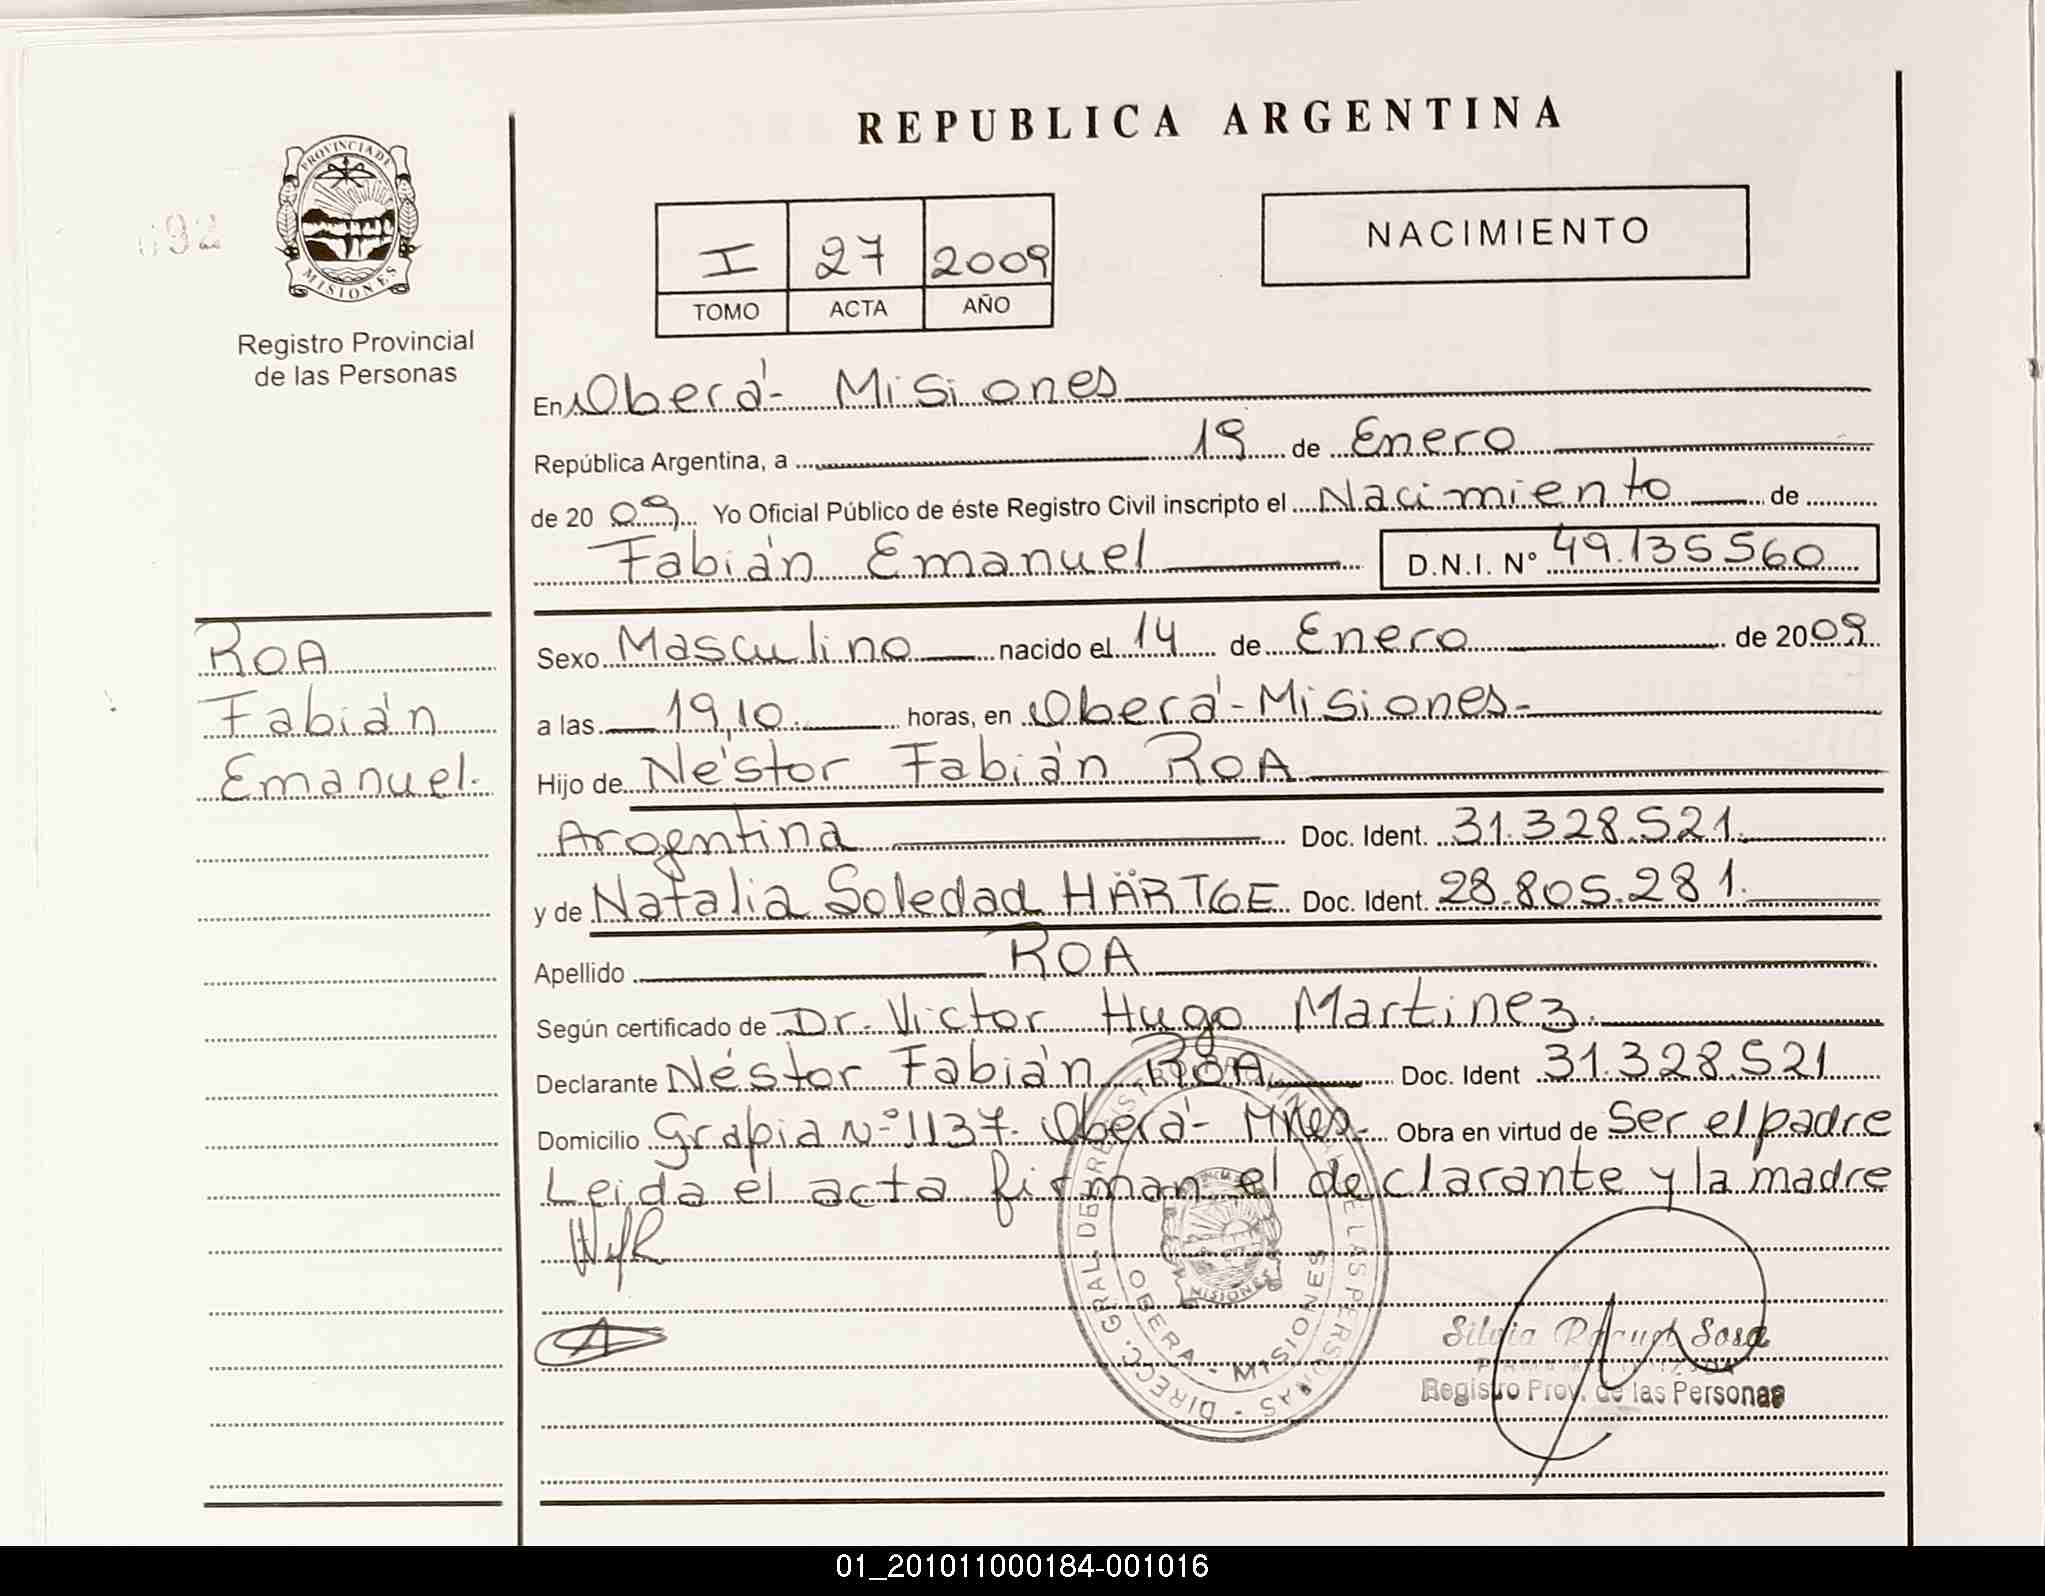 REPUBLICA ARGENTINA
PROVINCIA DE
MISIONES
Registro Provincial
de las Personas
I 27 2009
TOMO ACTA AÑO
NACIMIENTO
En Oberá - Misiones
República Argentina, a 19 de Enero
de 20 09 Yo Oficial Público de éste Registro Civil inscripto el Nacimiento de
Fabián Emanuel D.N.I. Nº 49.135560
ROA
Fabián
Emanuel.
Sexo Masculino nacido el 14 de Enero de 2009
a las 19,10 horas, en Oberá - Misiones -
Hijo de Néstor Fabián ROA
Argentina Doc. Ident. 31.328.521.
y de Natalia Soledad HÄRTGE Doc. Ident. 28.805.281.
Apellido ROA
Según certificado de Dr. Victor Hugo Martinez.
Declarante Néstor Fabián ROA Doc. Ident 31.328.521
Domicilio Grapia Nº 1137. Oberá - Mnes - Obra en virtud de Ser el padre
Leida el acta firman el declarante y la madre
DIRECC. GRAL. DE REGISTRO PROVINCIAL DE LAS PERSONAS -
OBERA - MISIONES
MISIONES
Silvia Raquel Sosa
Registro Prov. de las Personas
01_201011000184-001016